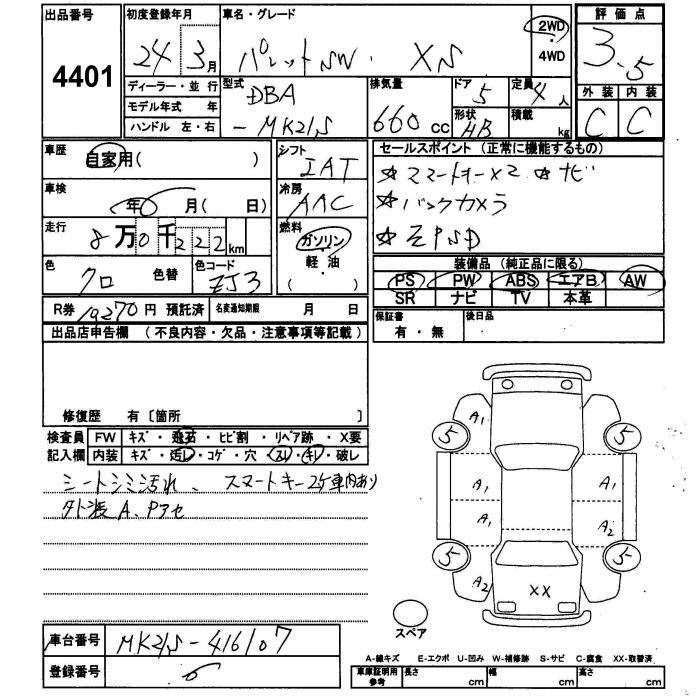 出品番号
4401
初度登録年月
24 3月
車名・グレード
パレットSW. XS
2WD
4WD
評価点
3.5
外装 内装
C C
ディーラー・並行
モデル年式 年
ハンドル 左・右
型式
DBA
-MK21S
排気量
660cc
ドア
5
形状
HB
定員
4人
積載
kg
車歴
自家用( )
シフト
IAT
セールスポイント (正常に機能するもの)
☆スマートキーx2 ☆ナビ
☆バックカメラ
☆左PSD
車検
年 月( 日)
冷房
AAC
走行
8万0千222km
燃料
ガソリン
軽・油
( )
色
クロ
色替
色コード
ZJ3
装備品 (純正品に限る)
PS PW ABS エアB AW
SR ナビ TV 本革
R券 10270円 預託済 名変通知期限 月 日
保証書
有・無
後日品
出品店申告欄 (不良内容・欠品・注意事項等記載)
修復歴 有〔箇所 〕
検査員 FW キズ・飛石・ヒビ割・リペア跡・X要
記入欄 内装 キズ・汚レ・コゲ・穴・スレ・キレ・破レ
シートシミ汚れ、スマートキー2ケ車内あり
外装A、Pアセ
A1
5 5
A1 A1
A1 A2
5 5
A2 XX
スペア
車台番号 MK21S-416107
登録番号
A-線キズ E-エクボ U-凹み W-補修跡 S-サビ C-腐食 XX-取替済
車庫証明用
参考
長さ cm 幅 cm 高さ cm